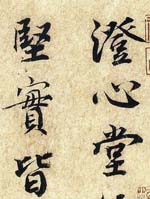 澄心堂
堅實皆